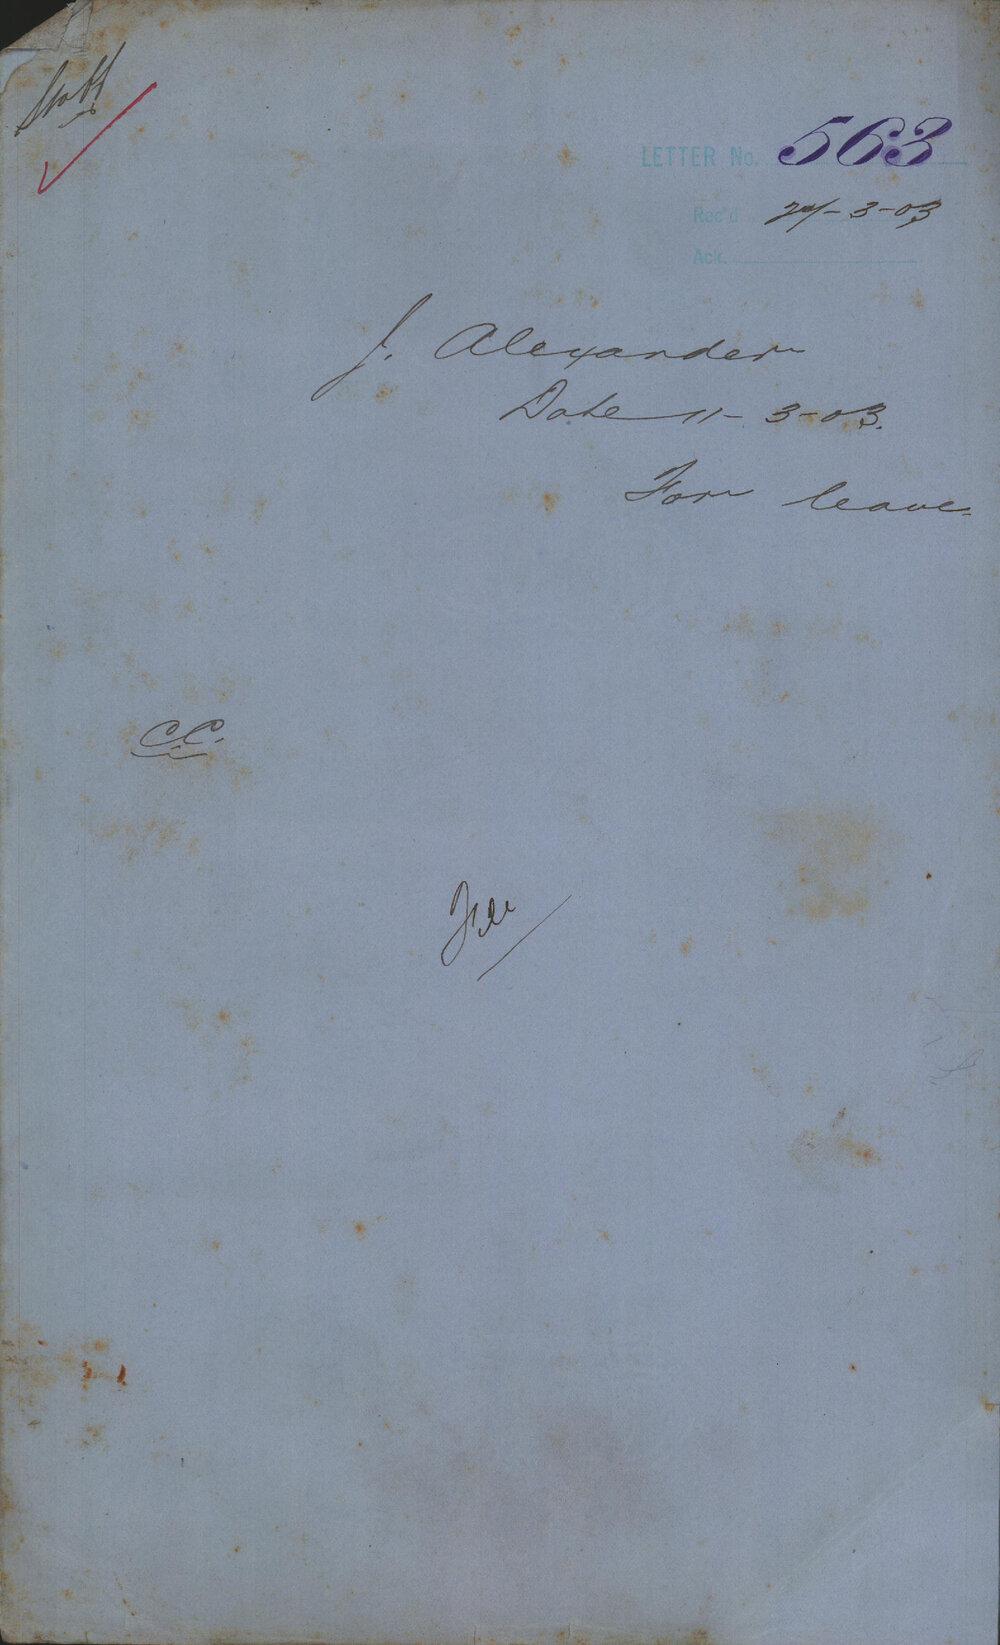 Staff
LETTER No. 563
Rec'd 24-3-03
Ack.
J. Alexander
Date 11-3-03.
For leave
C.C.
File